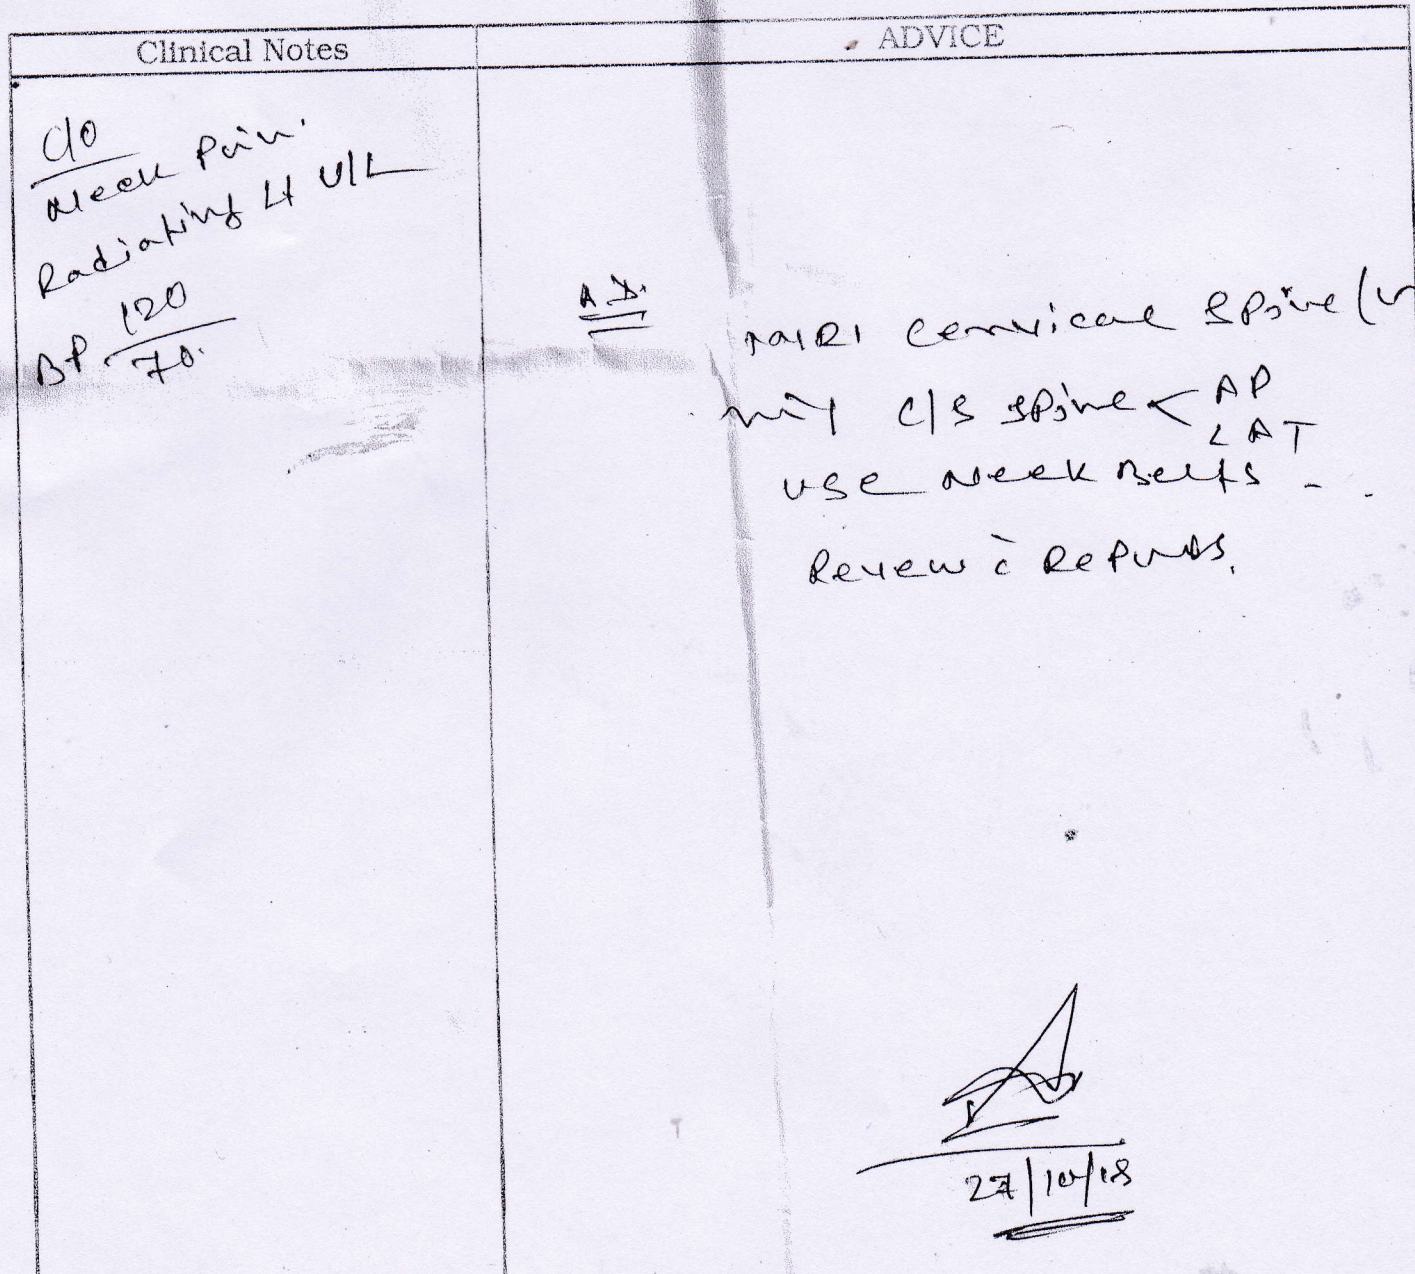 Clinical Notes
ADVICE
C/O
Neck Pain.
Radiating Lt U/L
BP 120/70.
AD.
MRI Cervical Spine (
C/S Spine < AP
LAT
Use Neck Belts - .
Review c̄ Reports.
27/10/18